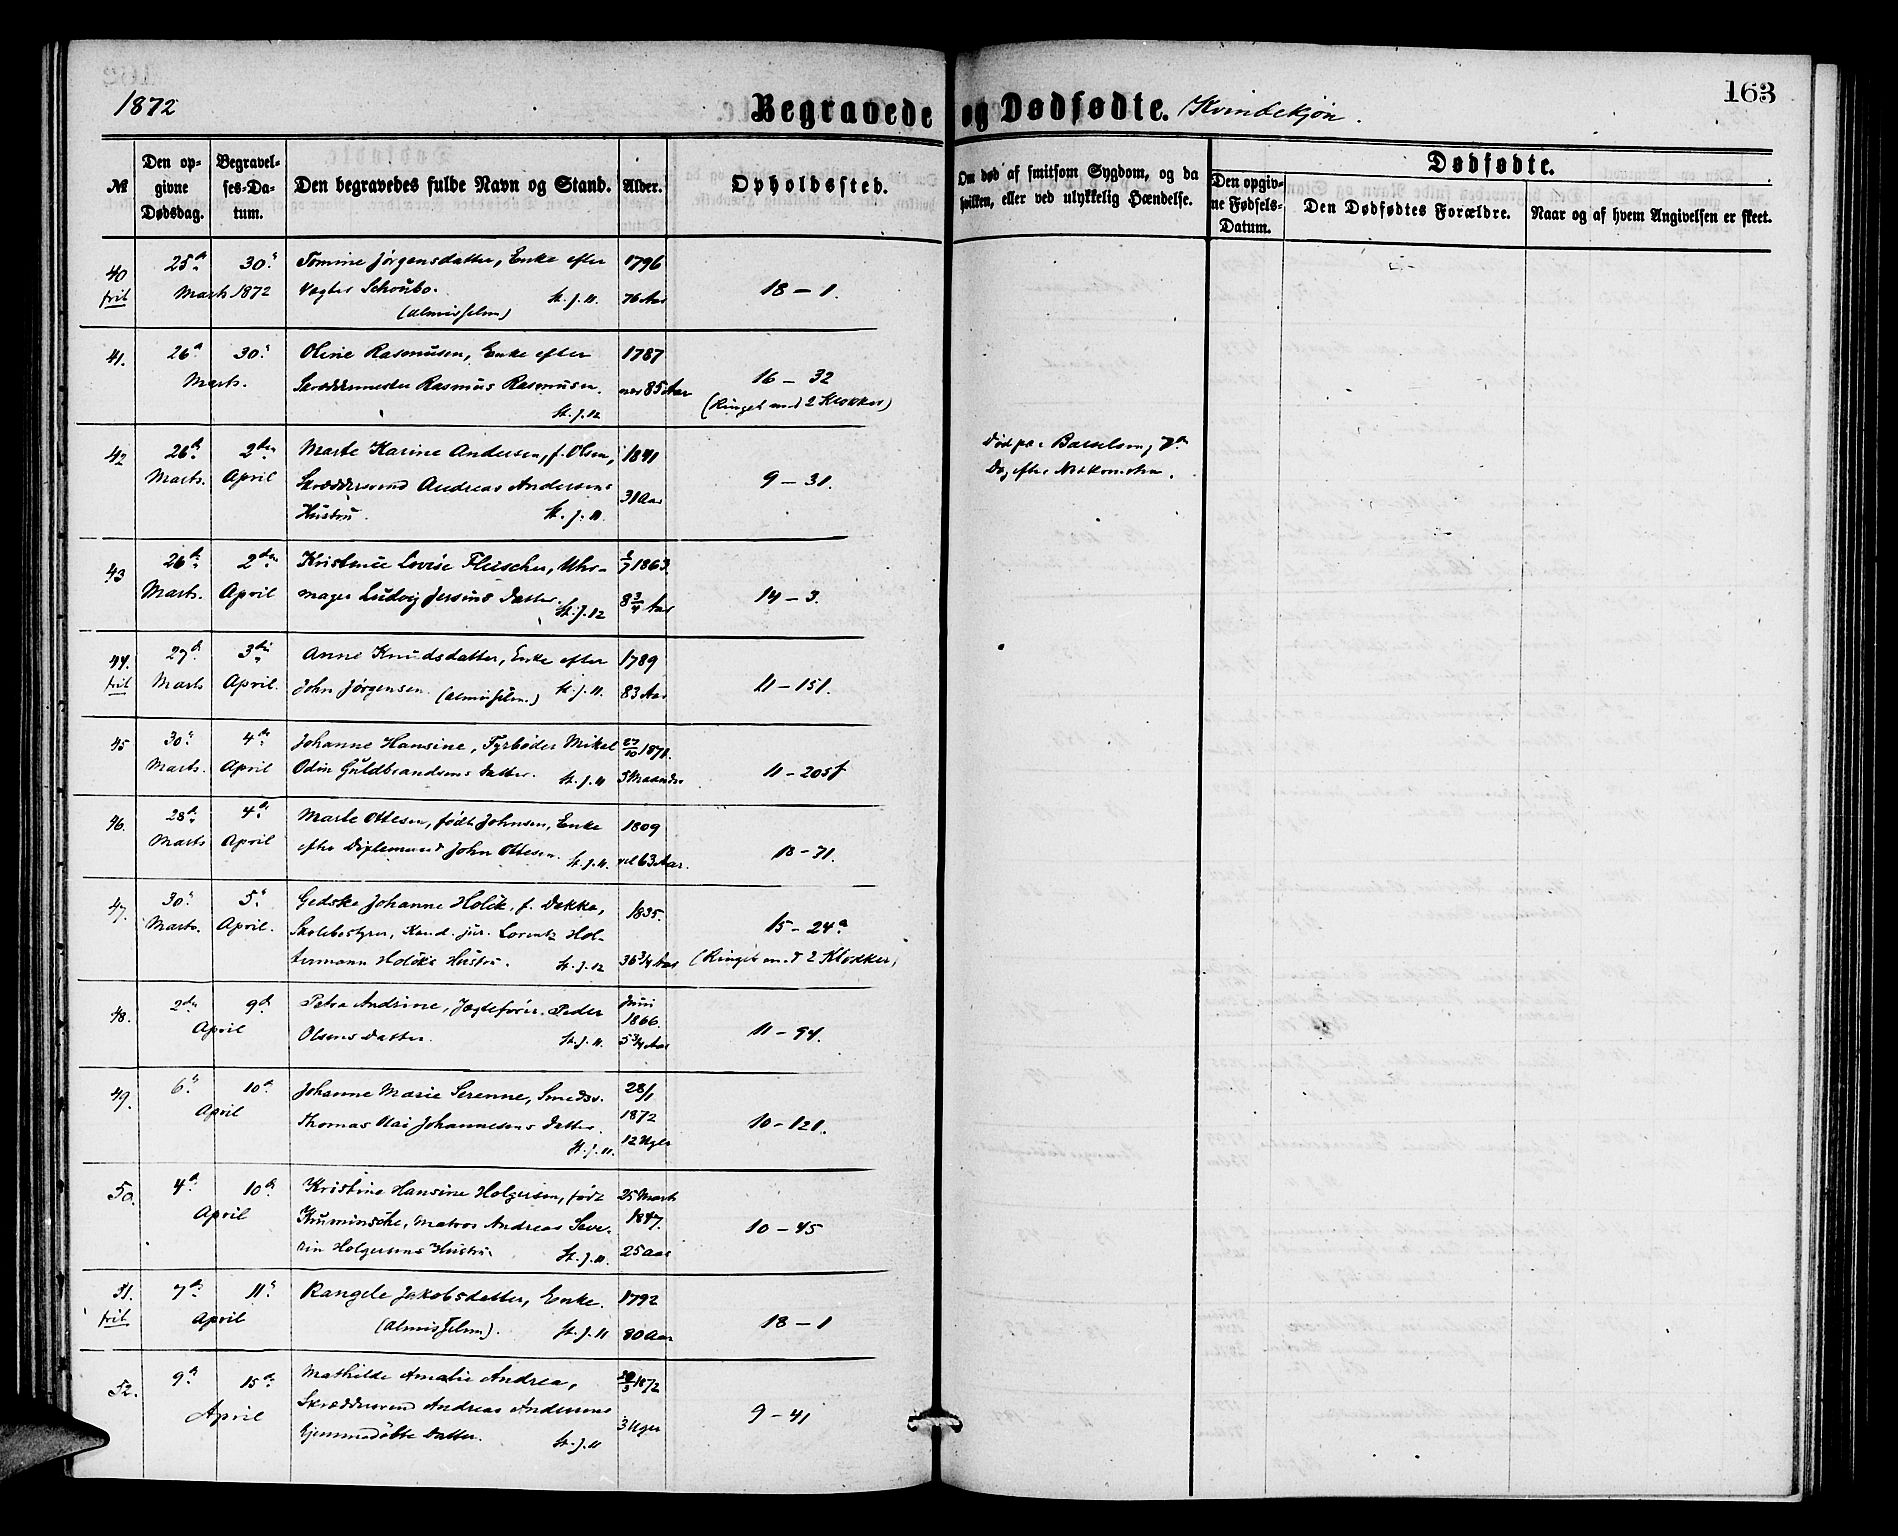 1872
Begravede og Dødfødte. Kvindekjøn.
163
№
Den opgivne Dødsdag.
Begravelses-Datum.
Den begravedes fulde Navn og Stand.
Alder.
Opholdssted.
Om død af smitsom Sygdom, og da hvilken, eller ved ulykkelig Hændelse.
Dødfødte.
Den opgivne Fødsels-Datum.
Den Dødfødtes Forældre.
Naar og af hvem Angivelsen er skeet.
40 25d 30. Tomine Jørgensdatter, Enke efter 1796
frit Marts 1872 Vægter Schoubo. St. J. 11. 76 Aar 18 – 1.
(almisselem)
41. 26d 30. Oline Rasmusen, Enke efter 1787
Marts. Skræddermester Rasmus Rasmusen. 85 Aar 16 – 32
St. J. 12 (Ringet med 2 Klokker)
42 26d 2den Marte Karine Andersen, f. Olsen, 1841 Død paa Barselseng 7d
Marts. April Skræddersvend Andreas Andersens 31 Aar 9 – 31. Dag efter Nedkomsten.
Hustru. St. J. 11.
43 26d 2den Kristine Lovise Fleischer, Uhr- 1/7 1863.
Marts. April mager Ludvig Jessens Datter. 8 3/4 Aar 14 – 3.
St. J. 12
44. 27d 3die Anne Knudsdatter, Enke efter 1789
frit Marts April. John Jørgensen. (almisselem.) St. J. 11. 83 Aar 11 – 151.
45 30. 4de Johanne Hansine, Fyrbøder Mikal 27/10 1871.
Marts. April Odin Guldbrandsens Datter. St. J. 11 5 Maaneder 11 – 205f
46. 28d 4de Marte Ottesen, født Johnsen, Enke 1809
Marts April efter John Ottesen. St. J. 11. 63 Aar. 18 – 71.
47. 30. 5. Gedske Johanne f. Dekke, 1835.
Marts. April. Skolebestyrer, Kand. jur. Lorentz Hol- 15 – 24a
termann Hustru. St. J. 12 36 3/4 Aar (Ringet med 2 Klokker)
48. 2den 9d Petra Andrine, Jægtefører Peder Juni 1866.
April Olsens Datter. St. J. 11. 5 3/4 Aar 11 – 94.
49. 6. 10d Johanne Marie Serenne, Smedsv. 28/1 1872
April Thomas Johannesens Datter. 10 – 121.
St. J. 11. 12 Uger
50. 4d 10d Kristine Hansine Holgersen, født 25 Marts
April Matros Andreas Seve- 1847. 10 – 45
rin Holgersens Hustru St. J. 11. 25 Aar
51. 7d 11. Rangele Jakobsdatter, Enke. 1792
frit April (almisselem). St. J. 11 80 Aar 18 – 1
52. 9d 15d Mathilde Amalie Andrea, 1872
April Skræddersvend Andreas Andersens 9 – 41
hjemmedøbte Datter. St. J. 11 3 Uger